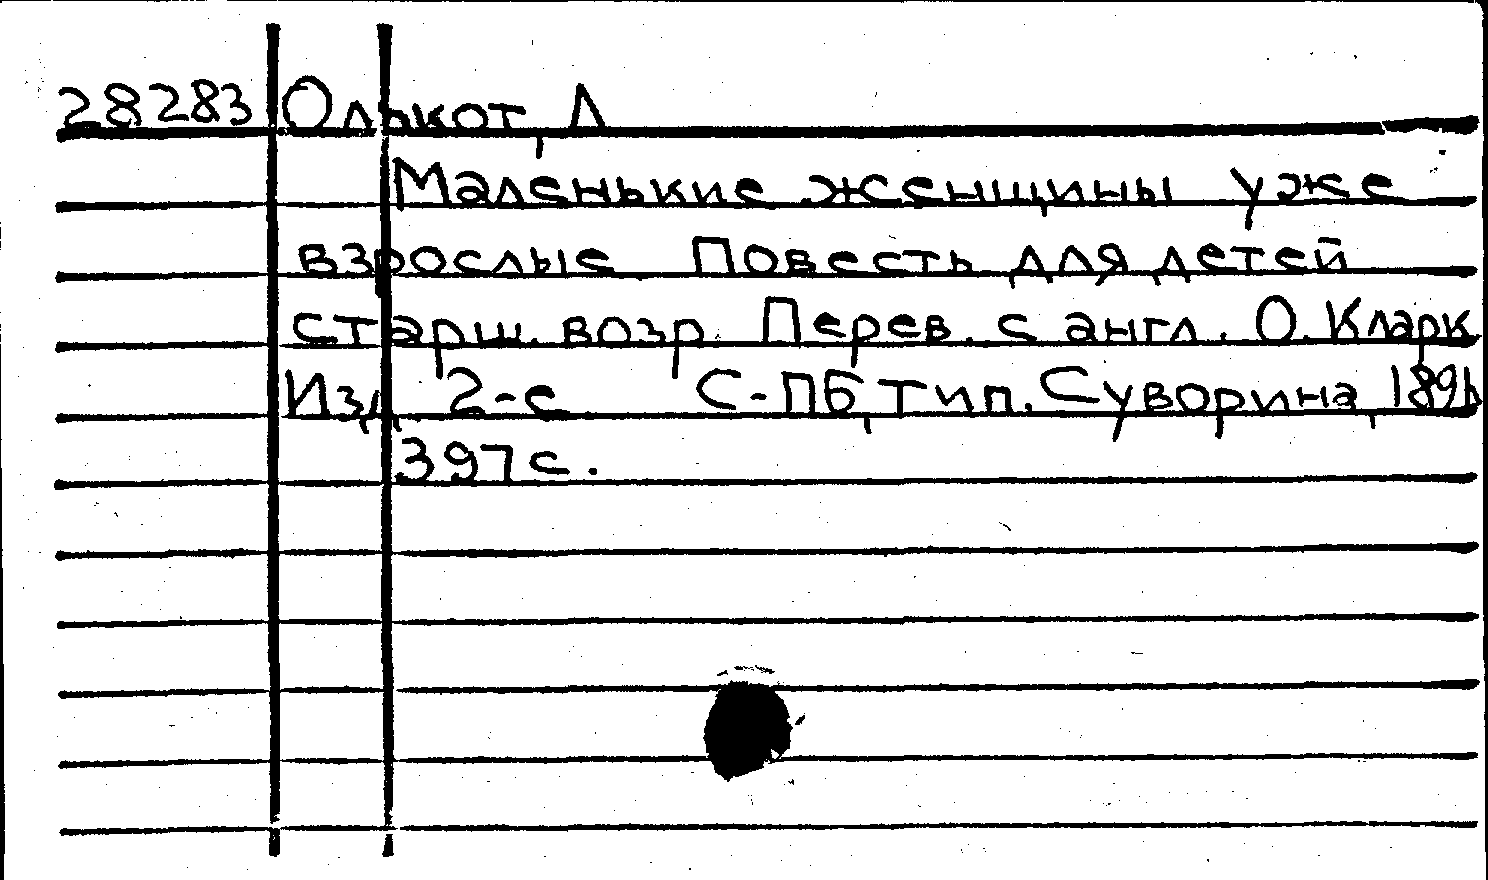 28283 Олькот, Л
Маленькие женщины уже
взрослые. Повесть для детей
старш. возр. Перев. с англ. О. Кларк
Изд. 2-е С-ПБ, тип. Суворина,
397 с.